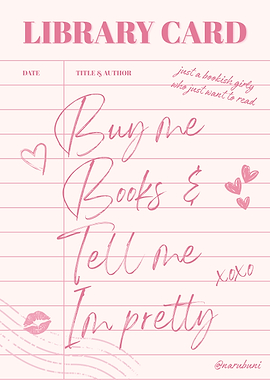 LIBRARY CARD
DATE TITLE & AUTHOR
just a bookish girly
who just want to read
Buy me
Books &
Tell me
xoxo
Im pretty
@narubuni